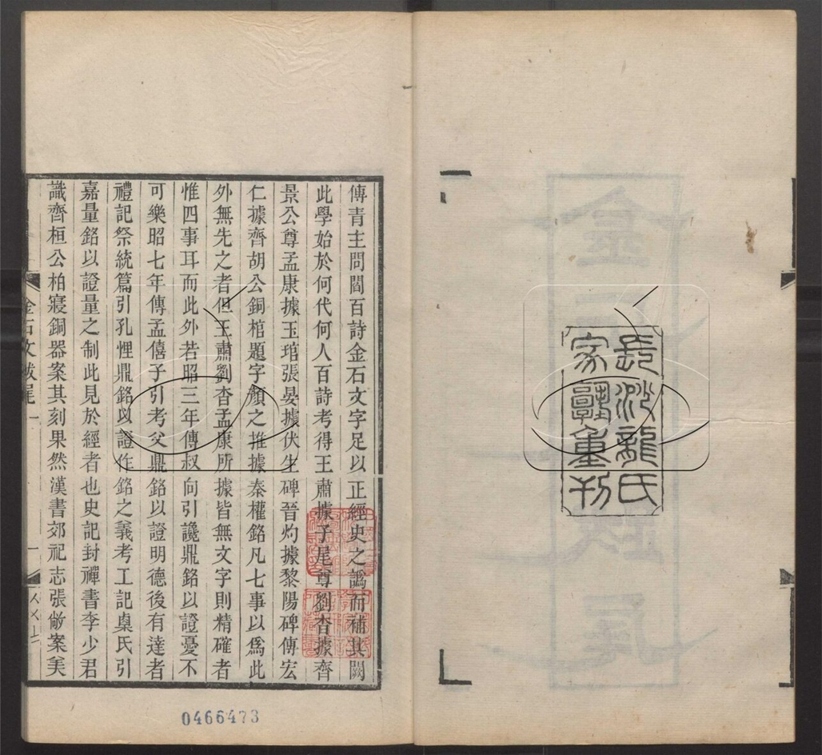 長沙龍氏
家塾重刊
傳青主問閻百詩金石文字足以正經史之譌而補其闕
此學始於何代何人百詩考得王肅據子尾尊劉杳據齊
景公尊孟康據玉琯張晏據伏生碑晉灼據黎陽碑傳宏
仁據齊胡公銅棺題字顏之推據秦權銘凡七事以爲此
外無先之者但王肅劉杳孟康所據皆無文字則精確者
惟四事耳而此外若昭三年傳叔向引讒鼎銘以證憂不
可樂昭七年傳孟僖子引考父鼎銘以證明德後有達者
禮記祭統篇引孔悝鼎銘以證作銘之義考工記㮚氏引
嘉量銘以證量之制此見於經者也史記封禪書李少君
識齊桓公柏寢銅器案其刻果然漢書郊祀志張敞案美
金石文跋尾一
一
0466473